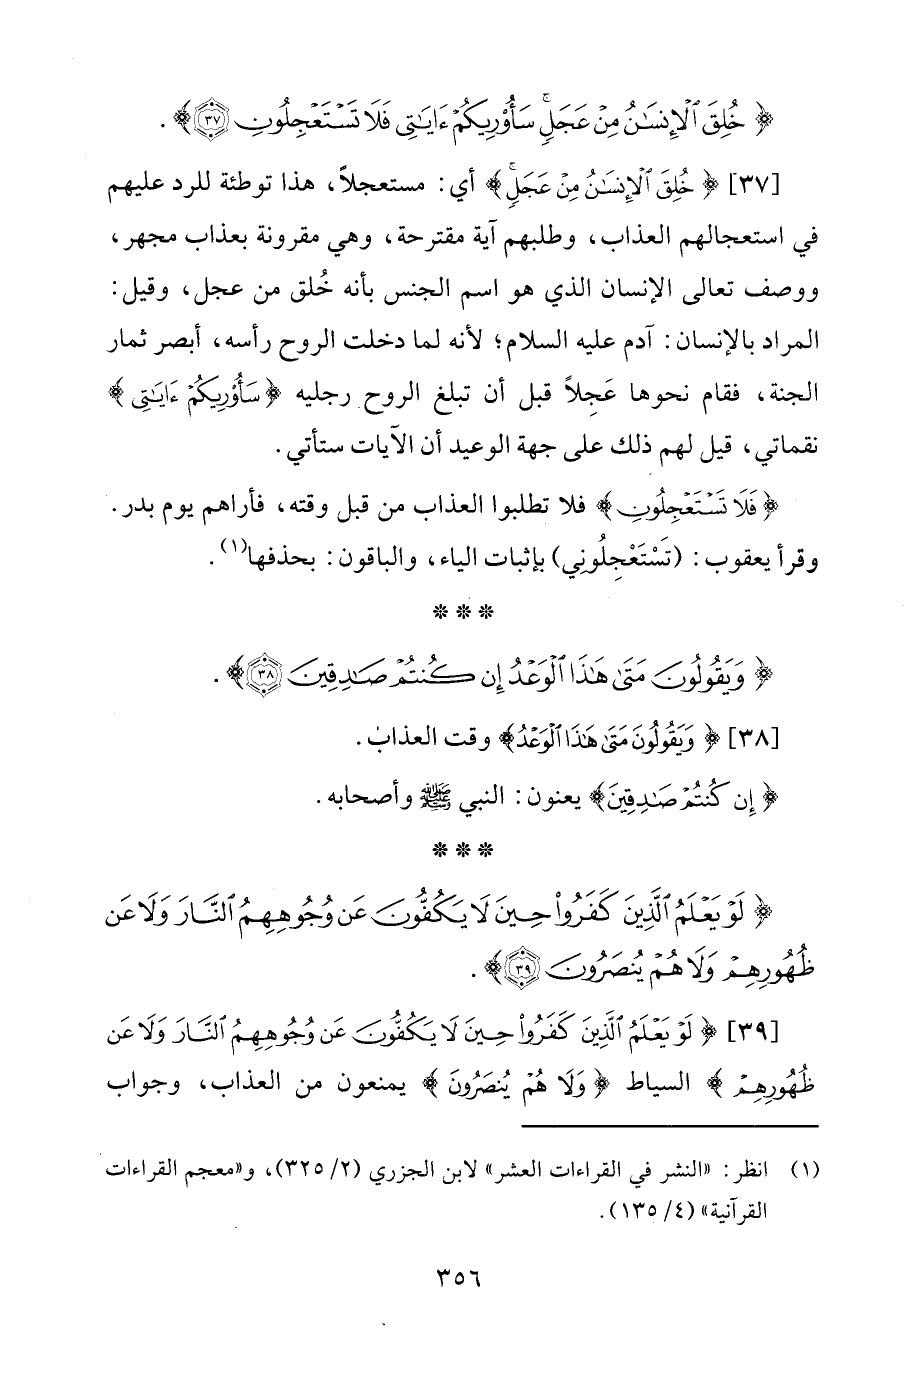 ﴿ خُلِقَ ٱلْإِنسَٰنُ مِنْ عَجَلٍ ۚ سَأُو۟رِيكُمْ ءَايَٰتِى فَلَا تَسْتَعْجِلُونِ ٣٧﴾ .
[٣٧] ﴿ خُلِقَ ٱلْإِنسَٰنُ مِنْ عَجَلٍ ۚ ﴾ أي: مستعجلاً، هذا توطئة للرد عليهم
في استعجالهم العذاب، وطلبهم آية مقترحة، وهي مقرونة بعذاب مجهر،
ووصف تعالى الإنسان الذي هو اسم الجنس بأنه خُلق من عجل، وقيل:
المراد بالإنسان: آدم عليه السلام؛ لأنه لما دخلت الروح رأسه، أبصر ثمار
الجنة، فقام نحوها عَجِلاً قبل أن تبلغ الروح رجليه ﴿ سَأُو۟رِيكُمْ ءَايَٰتِى ﴾
نقماتي، قيل لهم ذلك على جهة الوعيد أن الآيات ستأتي.
﴿ فَلَا تَسْتَعْجِلُونِ ﴾ فلا تطلبوا العذاب من قبل وقته، فأراهم يوم بدر.
وقرأ يعقوب: (تَسْتَعْجِلُونِي) بإثبات الياء، والباقون: بحذفها(١).
* * *
﴿ وَيَقُولُونَ مَتَىٰ هَٰذَا ٱلْوَعْدُ إِن كُنتُمْ صَٰدِقِينَ ٣٨﴾ .
[٣٨] ﴿ وَيَقُولُونَ مَتَىٰ هَٰذَا ٱلْوَعْدُ ﴾ وقت العذاب.
﴿ إِن كُنتُمْ صَٰدِقِينَ ﴾ يعنون: النبي ﷺ وأصحابه.
* * *
﴿ لَوْ يَعْلَمُ ٱلَّذِينَ كَفَرُوا۟ حِينَ لَا يَكُفُّونَ عَن وُجُوهِهِمُ ٱلنَّارَ وَلَا عَن
ظُهُورِهِمْ وَلَا هُمْ يُنصَرُونَ ٣٩﴾ .
[٣٩] ﴿ لَوْ يَعْلَمُ ٱلَّذِينَ كَفَرُوا۟ حِينَ لَا يَكُفُّونَ عَن وُجُوهِهِمُ ٱلنَّارَ وَلَا عَن
ظُهُورِهِمْ ﴾ السياط ﴿ وَلَا هُمْ يُنصَرُونَ ﴾ يمنعون من العذاب، وجواب
(١) انظر: «النشر في القراءات العشر» لابن الجزري (٢/ ٣٢٥)، و«معجم القراءات
القرآنية» (٤/ ١٣٥).
٣٥٦